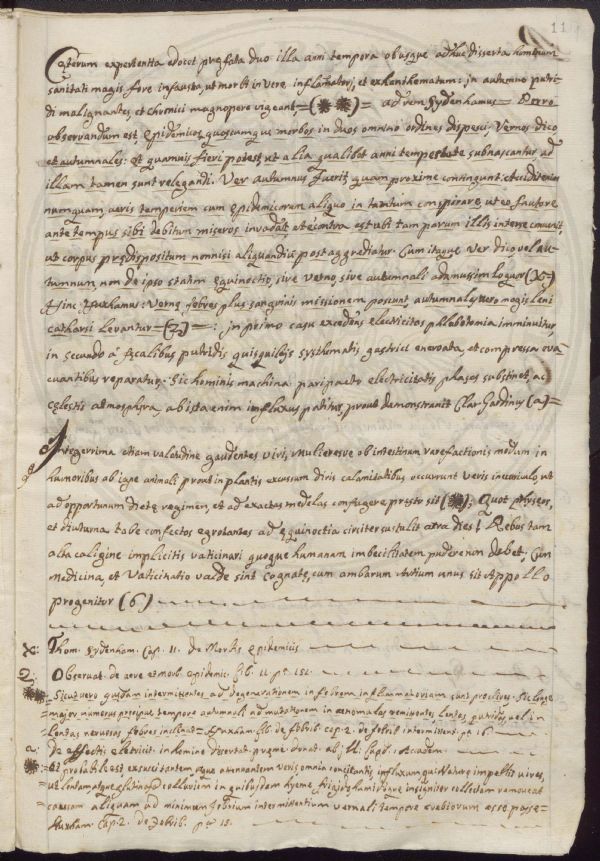 11
Cęterum experientia edocet pręfata duo illa anni tempora obusque adhuc disserta hominum
sanitati magis fore infausta, ut morbi in Vere inflam̄atorij, et exhanthematum: in autumno putri-
di malignantes, et chronici magnopere vigeant = (✱✱) = ad rem Sydenhamus = Porro
observandum est, Epidemicos, quoscumque morbos in duos omnino ordines dispesci, Vernos dico,
et autumnales: Et quamvis fieri potest, ut alia qualibet anni tempestate subnascantur, ad
illam tamen sunt relegandi. Ver autumnus fuerit, quam proxime contingunt. Accidit enim
numquam veris temperiem cum Epidemicorum aliquo in tantum conspirare, ut eo fautore
ante tempus sibi debitum miseros invadat, et è contra est ubi tam parum illis inter se convenit,
ut corpus prędispositum nonnisi aliquandiu post aggrediatur. Cum itaque Ver dico vel au-
tumnum, non de ipso statim Equinoctio, sive verno, sive autumnali adamussim loquor (X=)
Hinc Huxhamus: Vernę febres plus sanguinis missionem poscunt autumnales vero magis leni
catharsi levantur = (Z) =: in primo casu excedens electricitas phlebotomia imminuitur,
in secundo á fęcalibus putridis quisquilijs systhmatis gastrici enervata, et compressa eva-
cuantibus reparatur. Sic hominis machina pari pacto electricitatis phases substinet, ac
cęlestis atmosphra, ab ista enim influxus patitur, prout demonstravit Clar. Gardinus (a)=
Integerrima etiam valetidine gaudentes viri, mulieresve ob intestinum rarefactionis modum in
humoribus ab igne animali prout in plantis excussum diris calamitatibus occurrunt veris incuniculo, ut
ad opportunum dietę regimen, et ad exactas medelas confugere pręsto sit (✱); Quot physeos,
et diuturna tabe confectos egrotantes ad equinoctia circiter sustalit atra dies! Rebus tam
alta caligine implicitis vaticinari quoque humanam imbecilitatem pudere non debet, Cum
Medicina, et Vaticinatio valde sint cognatę, cum ambarum Artium unus sit Appollo
progenitor (6)
X: Thom. Sydenham. Cap. 11. de Morbis epidemicis
Z. Observat. de aere et morb. epidemic. lib. 11 pę. 151.
✱✱ Sicuti vero quidam intermittentes ad degenerationem in febrem inflammatoriam sunt proclives. Sic longe
major numerus pręcipue tempore autumnali ad mutationem in anomalas, remittentes, lentas putridas, vel in
lentas nervosas febres inclinat = Huxham lib. de febrib. cap. 2. de febrib. intermittent. pę. 16
a: De effectis electricit. in homine
✱: Et probabile est exsuscitantem, atque attenuantem veris omnia concitantis influxum, qui Naturę impellit vires,
ut lentam, atque glutinosam colluviem in quibusdam hyeme frigida, humidaque insigniter collectam removeat
causam aliquam ad minimum febrium intermittentium vernali tempore crebiorum esse posse =
Huxham. Cap. 2. de Febrib. pę. 15.